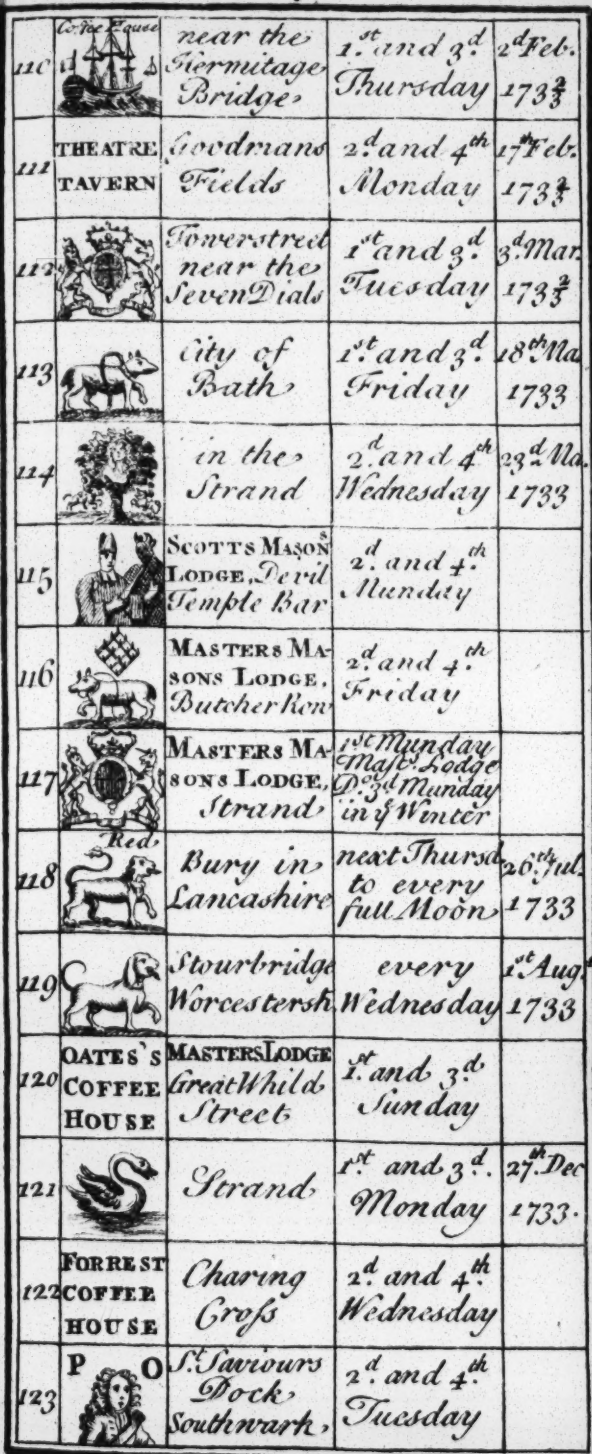 110
Coffee House
near the
Hermitage
Bridge
1.st and 3.d
Thursday
2.d Feb.
173 2/3
111
THEATRE
TAVERN
Goodmans
Fields
2.d and 4.th
Monday
17.th Feb.
173 2/3
112
Towerstreet
near the
Seven Dials
1.st and 3.d
Tuesday
3.d Mar.
173 2/3
113
City of
Bath
1.st and 3.d
Friday
18.th Ma.
1733
114
in the
Strand
2.d and 4.th
Wednesday
23.d Ma.
1733
115
SCOTTS MASONs
LODGE, Devil
Temple Bar
2.d and 4.th
Munday
116
MASTERS MA-
SONS LODGE,
Butcher Row
2.d and 4.th
Friday
117
MASTERS MA-
SONS LODGE,
Strand
1st Munday
Mast.s Lodge
D.o 3d Munday
in ye Winter
118
Red
Bury in
Lancashire
next Thursd
to every
full Moon
26.th Jul.
1733
119
Stourbridge
Worcestersh.
every
Wednesday
1.st Aug.t
1733
120
OATES'S
COFFEE
HOUSE
MASTERS LODGE
Great Whild
Street
1.st and 3.d
Sunday
121
Strand
1.st and 3.d.
Monday
27.th Dec
1733.
122
FORREST
COFFEE
HOUSE
Charing
Croſs
2.d and 4.th
Wednesday
123
P O
S.t Saviours
Dock
Southwark,
2.d and 4.th
Tuesday